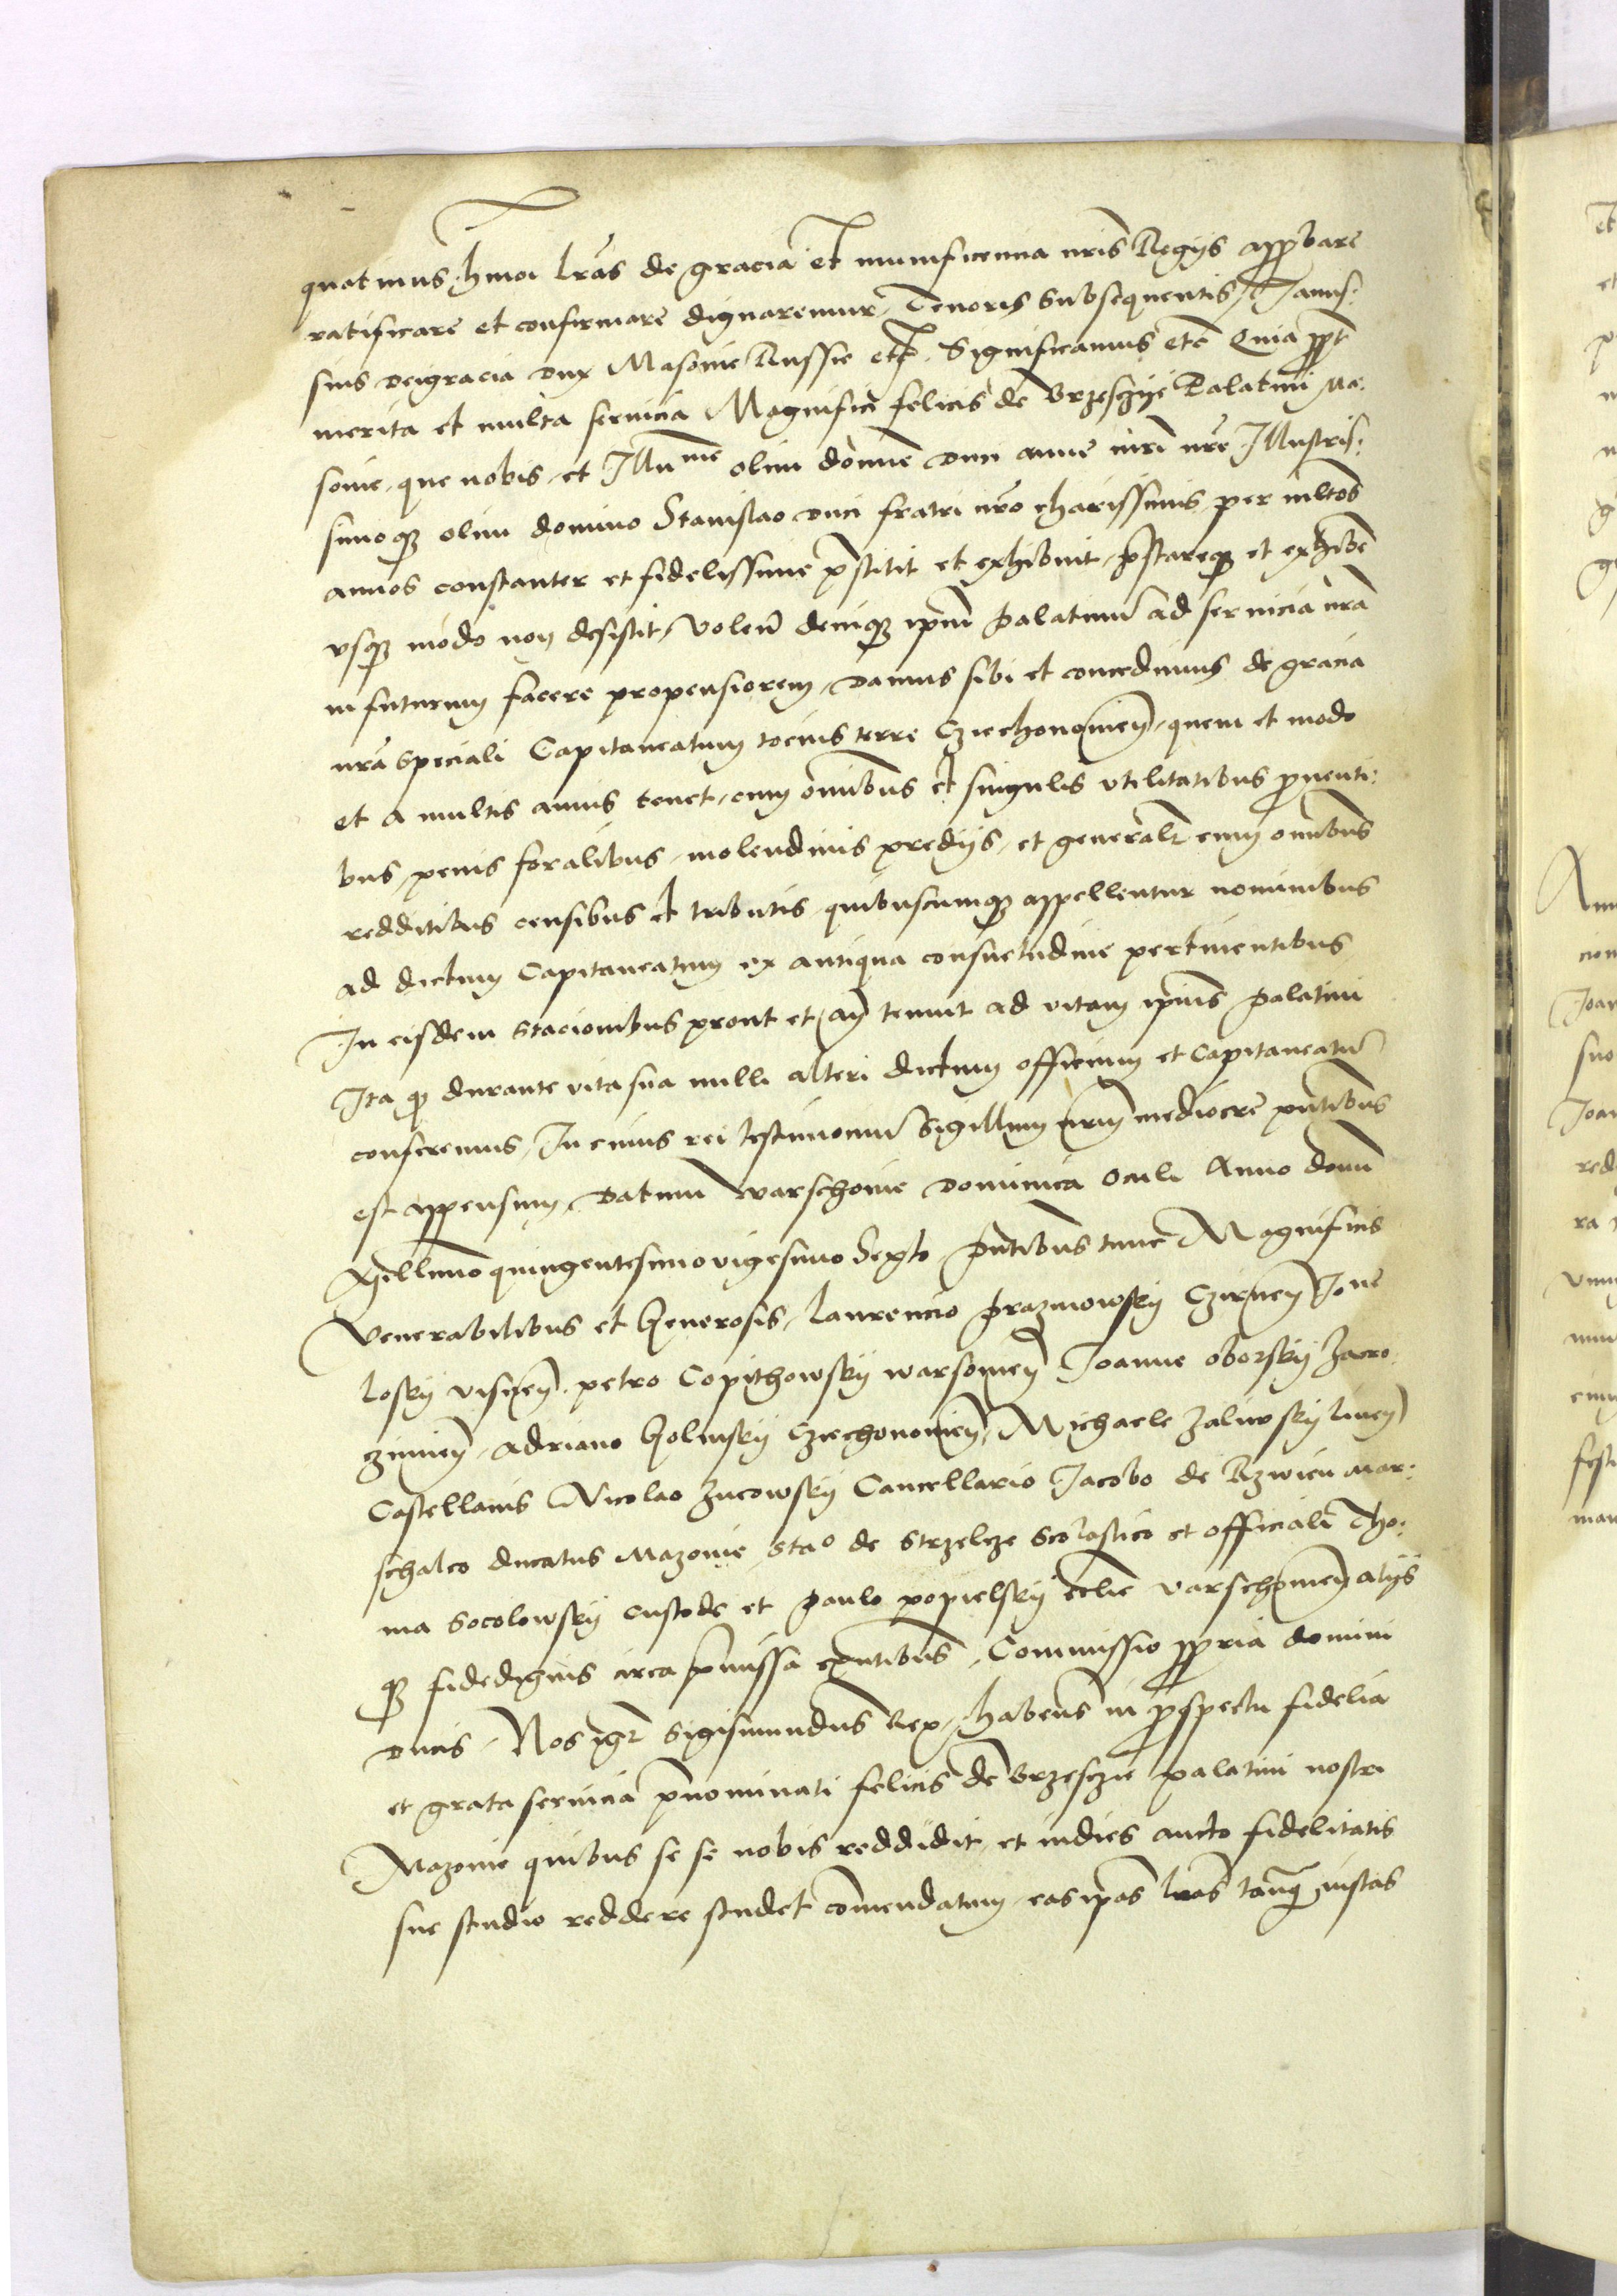 quatinus hmoi lras de gracia et munificencia nris Regijs approbare
ratificare et confirmare dignaremur, Tenoris subsequentis, Janus:
sius deigracia dux Masouie Russie etc. Significamus etc Quia propt
merita et multa seruicia Magnifici felicis de Brzesczye Palatini Ma:
souie, que nobis, et Illume olim domine duci anne mri nre Illustris:
simoq olim domino Stanislao duci fratri nro charissimis per mltos
annos constanter et fidelissime pstitit et exhibuit, pstareq et exhibe
vsq modo non desistit, volen deniq ipm Palatinu ad seruicia nra
in futurum facere propensiorem, damus sibi et concedimus de gracia
nra speciali Capitaneatum tocius terre Cziechonomien, quem et modo
et a multis annis tenet, cum omnibus et singulis vtilitatibus prouenti:
bus, penis foralibus, molendinis predijs, et generalr cum omnibus
redditibus censibus et tributis quibuscumq appellentur nominibus
ad dictum Capitaneatum ex antiqua consuetudine pertinentibus
In eisdem stacionibus prout et an tenuit ad vitam ipius Palatini
Ita q durante vita sua nulli alteri dictum officium et Capitaneatu
conferemus, In cuius rei testimoniu Sigillum nrum mediocre pntibus
est appensum, Datum Warschouie Dominica Oculi Anno domi
Millimo quingentesimo vigesimo Sexto Pntibus tunc Magnificis
Venerabilibus et Generosis, Laurencio Prazmowsky Czirnen Jone
losky visnen, petro Copithowsky warsouien Joanne oborsky Zacro:
czimien, Adriano Golinsky Cziechonomien, Michaele Zaliwsky liuen
Castellanis Nicolao Zucowsky Cancellario Jacobo de Rzwien Mar:
schalco ducatus Mazouie, Stao de Strzelcze Scolastico et officiali Tho:
ma Socolowsky custode et Paulo popielsky ecclie varschouien alijs
q fidedignis circa pmissa exntibus, Commissio propria domini
ducis, Nos igr Sigismundus Rex, habens in prospectu fidelia
et grata seruicia pnominati felicis de Brzesczie palatini nostri
Mazouie quibus se se nobis reddidit, et indies aucto fidelitatis
sue studio reddere studet comendatum, eas ipas lras tanq iustas